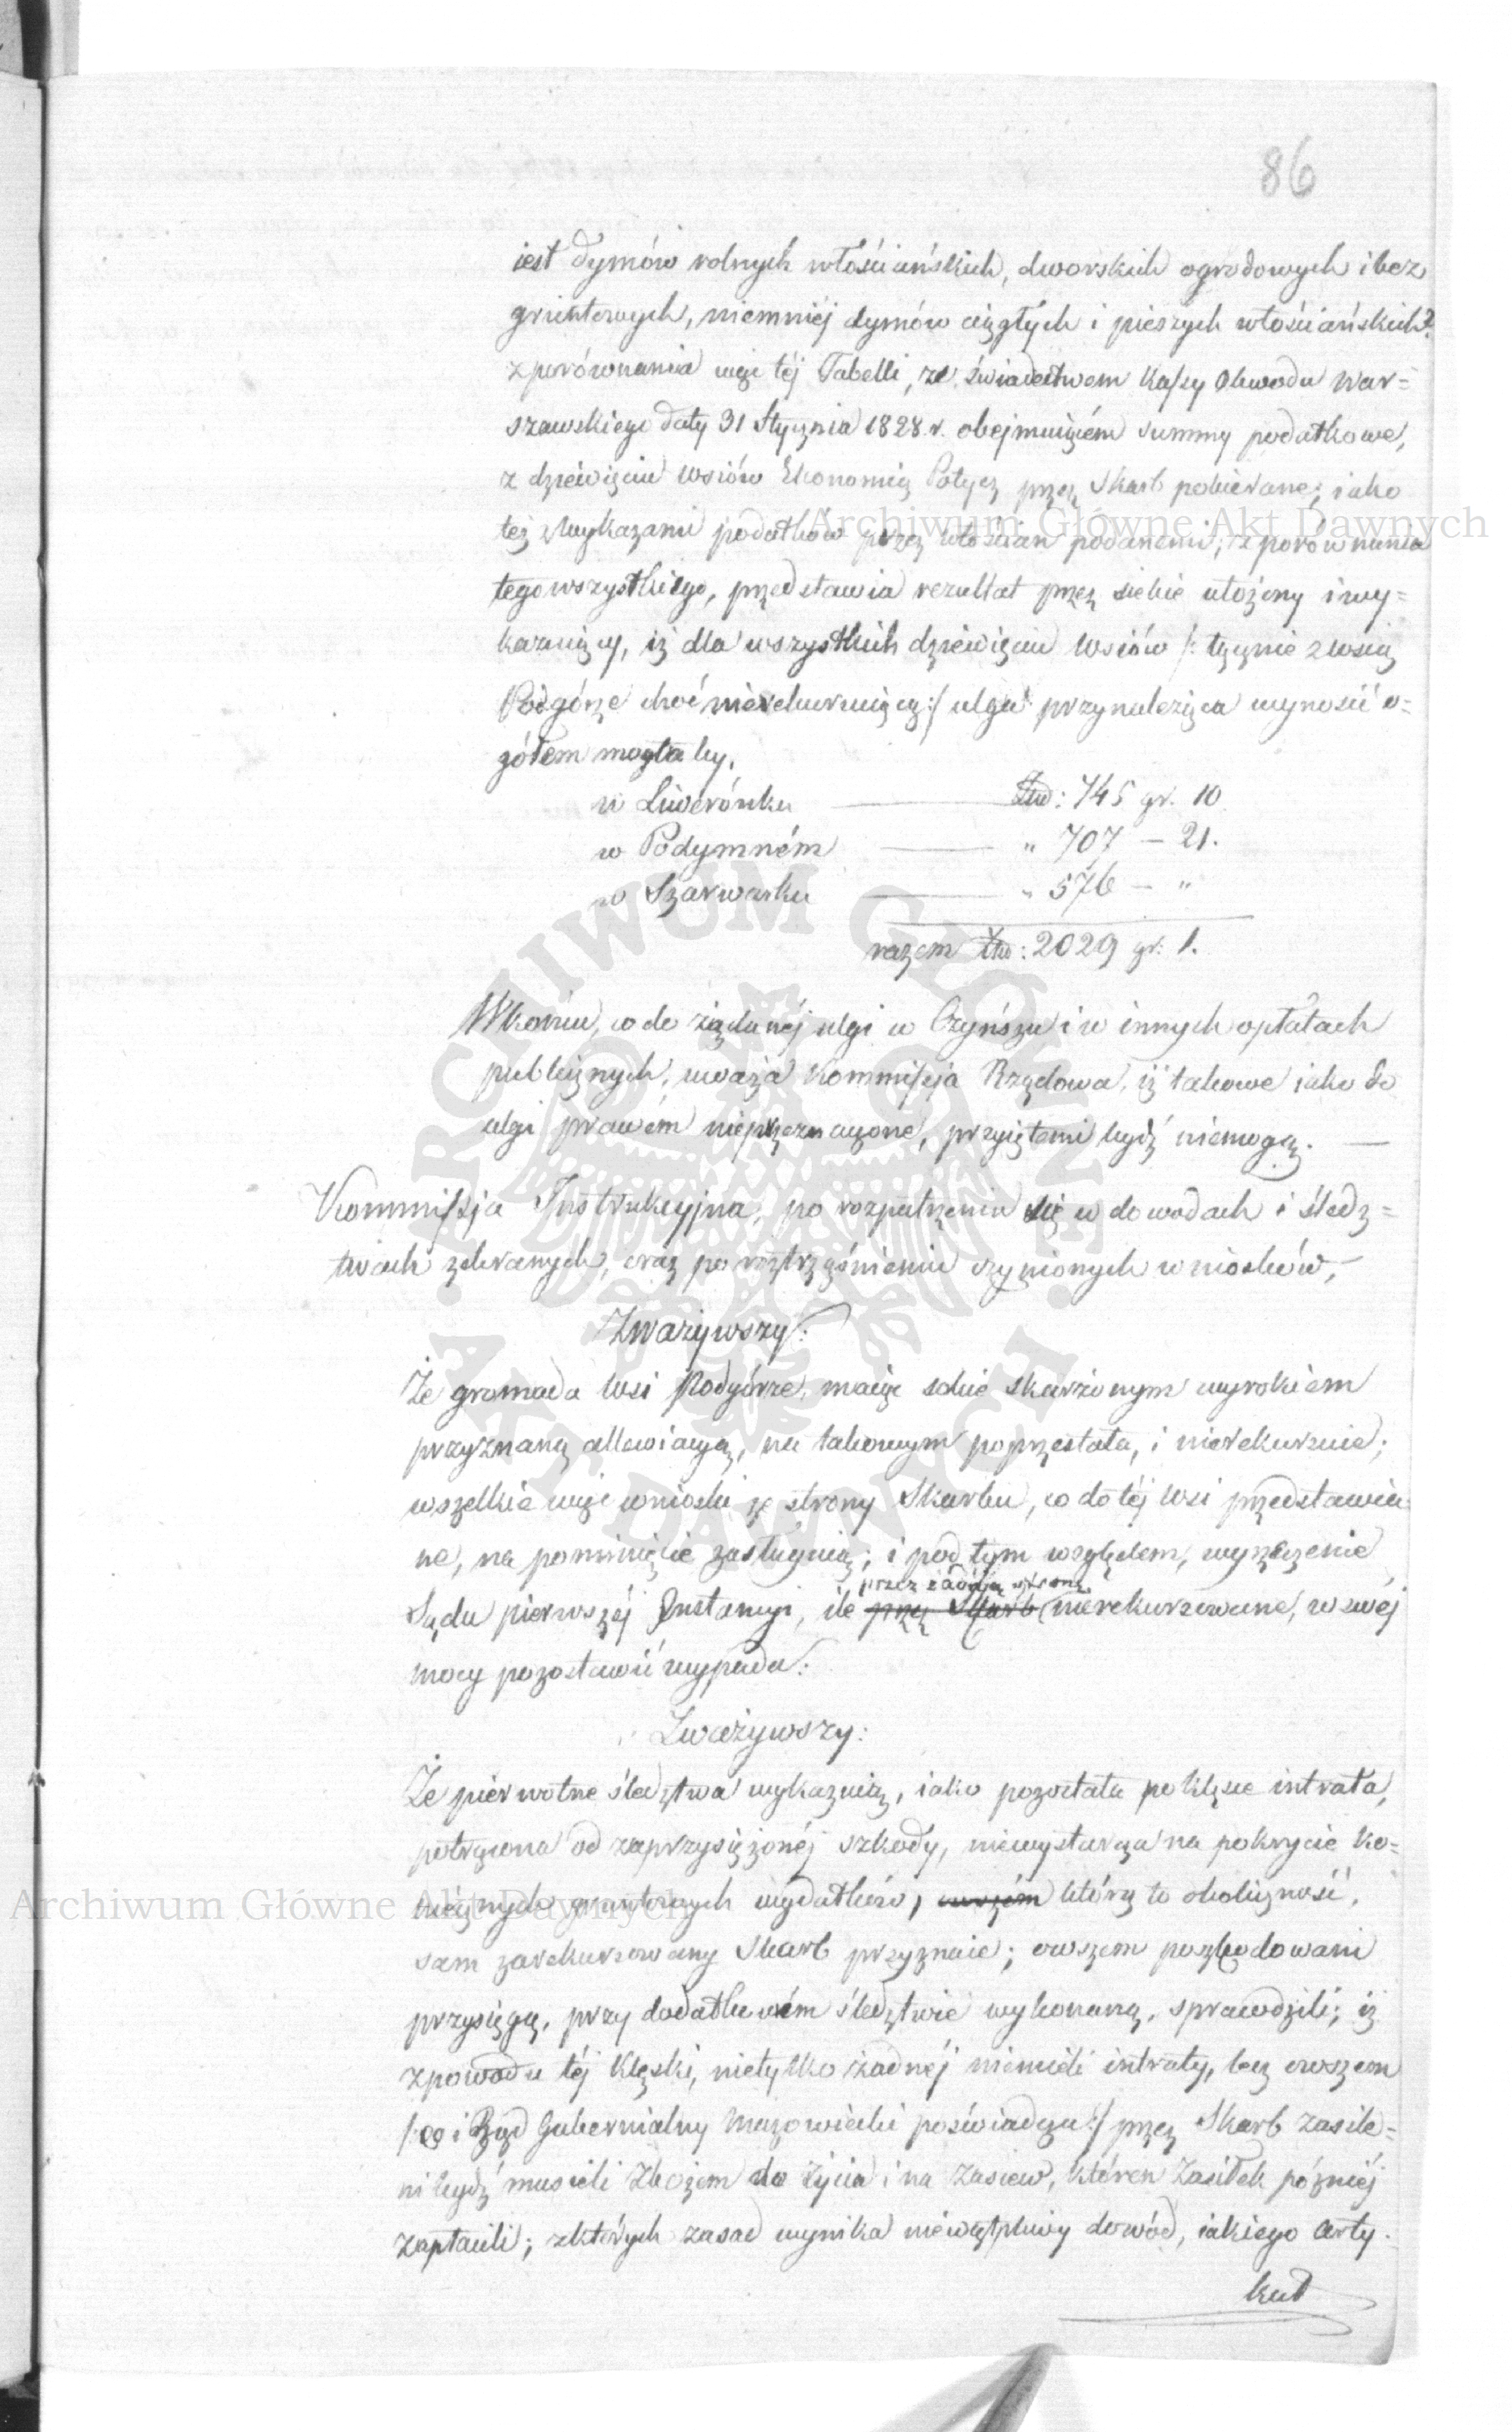 86
iest dymów rolnych włościańskich, dworskich ogrodowych i bez
gruntowych, niemniéj dymów ciągłych i pieszych włościańskich?
z porównania więc téj Tabelli, ze świadectwem Kassy Obwodu War=
szawskiego daty 31 Stycznia 1828 r. obejmuiącém summy podatkowe,
z dziewięciu wsiów Ekonomią Potycz przez Skarb pobierane; iako
też z Wykazami podatków przez włościan podanemi; z porównania
tego wszystkiego, przedstawia rezultat przez siebie ułożony i wy=
kazuiący, iż dla wszystkich dziewięciu Wsiów /: łącznie z wsią
Podgórze choć nierekuruiącą :/ ulga przynależąca wynosić o=
gółem mogła by,
w Liwerónku Złw: 745 gr. 10
w Podymném " 707 – 21.
w Szarwarku " 576 – "
razem Złw: 2029 gr: 1.
W końcu, co do żądanéj ulgi w Czynszu i w innych opłatach
publicznych, uważa Kommissja Rządowa, iż takowe iako do
ulgi prawem nieprzeznaczone, przyiętemi bydź niemogą. —
Kommissja Instrukcyjna, po rozpatrzeniu się w dowodach i śledz=
twach zebranych, oraz po roztrząśnieniu czynionych wniosków,
Zważywszy:
Że gromada Wsi Podgórze, maiąc sobie skarżonym wyrokiem
przyznaną allewiacyą, na takowym poprzestała, i nierekuruie;
wszelkie więc wnioski ze strony Skarbu, co do téj Wsi przedstawio
ne, na pominięcie zasługuią; i pod tym względem, wyrzeczenie
przez żadną stronę
Sądu pierwszéj Instancyi, ile przez Skarb nierekurowane, w swéj
mocy pozostawić wypada:
Zważywszy:
Że pierwotne śledztwa wykazuią, iako pozostała po klęsce intrata,
potrącona od zaprzysiężonéj szkody, niewystarcza na pokrycie ko=
niecznych gruntowych wydatków, którą to okoliczność,
sam zarekurowany Skarb przyznaie; owszem poszkodowani
przysięgą, przy dodatkowém śledztwie wykonaną, sprawdzili; iż
z powodu téj Klęski, nietylko żadnéj niemieli intraty, lecz owszem
/: co i Rząd Gubernialny Mazowiecki poświadcza :/ przez Skarb zasile=
ni bydź musieli Zbożem do życia i na zasiew, któren Zasiłek późniéj
zapłacili; z których zasad wynika niewątpliwy dowód, iakiego arty=
kuł
Archiwum Główne Akt Dawnych
Archiwum Główne Akt Dawnych
ARCHIWUM GŁÓWNE · AKT DAWNYCH ·